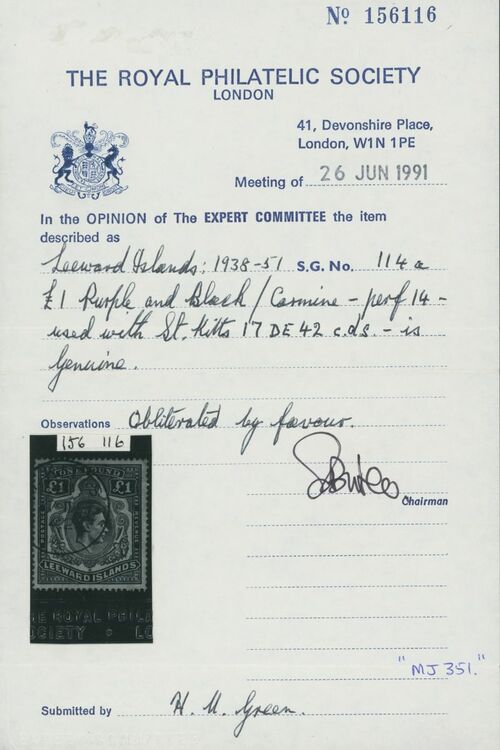 Nº 156116
THE ROYAL PHILATELIC SOCIETY
LONDON
41, Devonshire Place,
London, W1N 1PE
Meeting of 26 JUN 1991
In the OPINION of The EXPERT COMMITTEE the item
described as
Leeward Islands: 1938-51 S.G. No. 114a
£1 Purple and Black / Carmine - perf 14 -
used with St. Kitts 17 DE 42 c.d.s. - is
Genuine.
Observations Obliterated by favour.
156 116
ONE POUND
£1 £1
LEEWARD ISLANDS
HE ROYAL PHILA
OCIETY LO
Chairman
"MJ 351."
Submitted by H. M. Green.